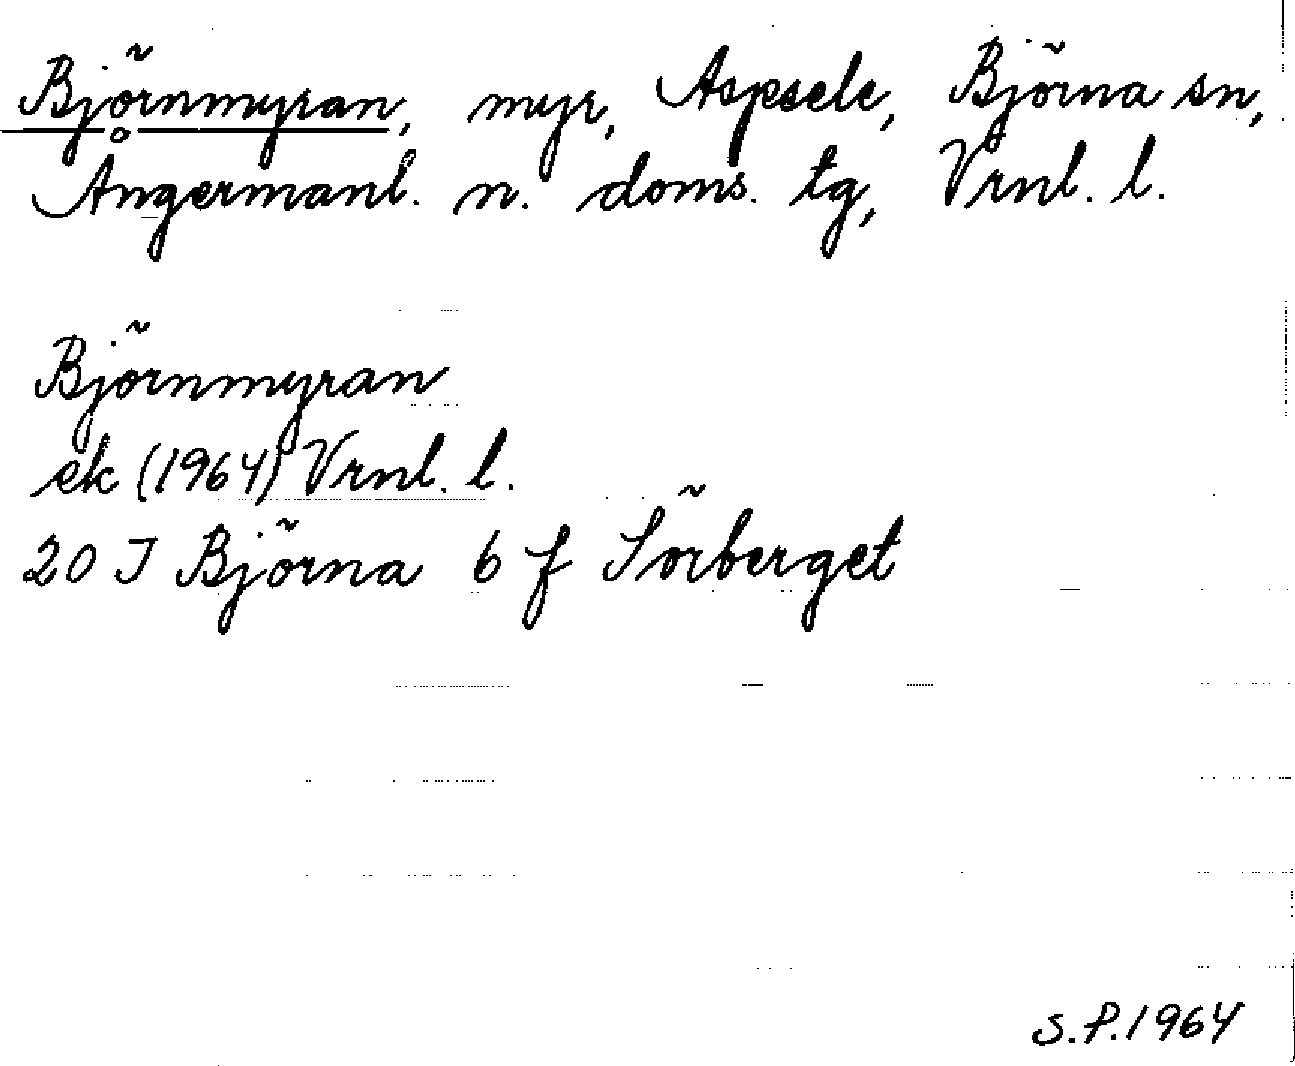 Björnmyran, myr, Aspsele, Björna sn,
Ångermanl. n. doms. tg, Vrnl. l.
Björnmyran
ek (1964) Vrnl. l.
20 J Björna 6 f Sörberget
S.P.1964